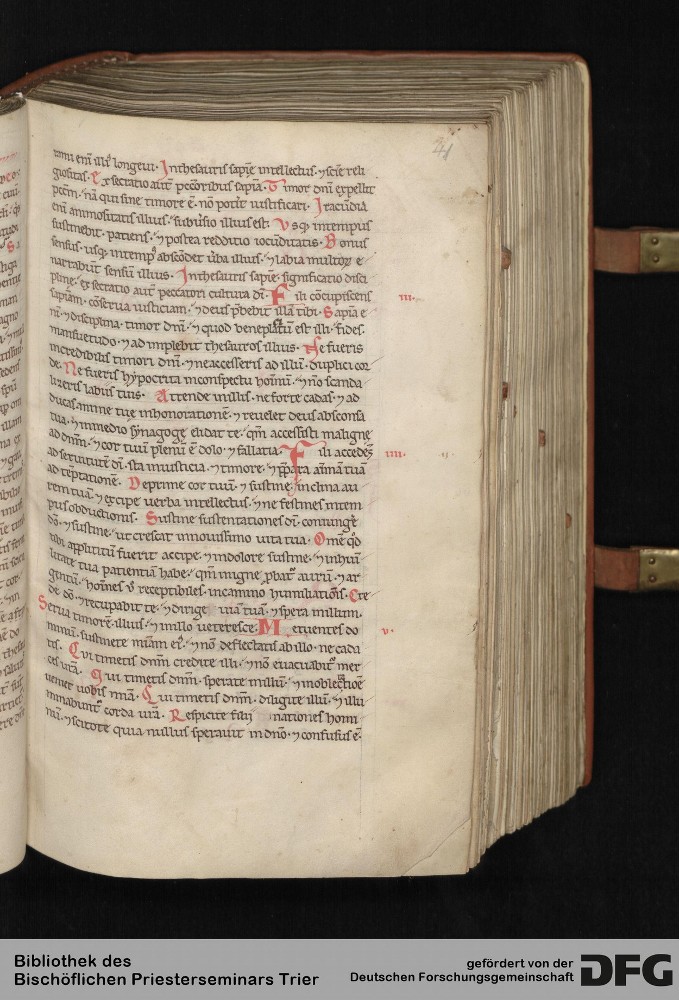 24
rami eni illi longeui. In thesauris sapie intellectus. 7 scie reli
giositas. Exsecratio aut peccoribus sapia. Timor dni expellit
pccm. na qui sine timore e. no potit iustificari. Iracudia
eni animositatis illius. subuersio illius est. Vsq in tempus
sustinebit patiens. 7 postea redditio iocuditatis. Bonus
sensus. usq in temp abscodet uba illius. 7 labia multor e
narrabunt sensu illius. In thesauris sapie. significatio disci
pline. exsecratio aut peccatori cultura di. Fili cocupiscens
iii.
sapiam. coserua iusticiam. 7 deus pbebit illa tibi. Sapia e
ni 7 disciplina. timor dni. 7 quod beneplacitu est illi. fides.
mansuetudo. 7 adimplebit thesauros illius. Ne fueris
incredibilis timori dni. 7 ne accesseris ad illu. duplici cor
de. Ne fueris hypocrita in conspectu hominu. 7 no scanda
lizeris labiis tuis. Attende in illis. ne forte cadas. 7 ad
ducas anime tue inhonoratione. 7 reuelet deus absconsa
tua. 7 in medio synagoge elidat te. qm accessisti maligne
ad dnm. 7 cor tuu plenu e dolo. 7 fallatia. Fili accedes
iiii.
ad seruitute di. sta in iusticia. 7 timore. 7 ppara anima tua
ad teptatione. Deprime cor tuu. 7 sustine. inclina au
rem tua. 7 excipe uerba intellectus. 7 ne festines in tem
pus obductionis. Sustine sustentationes di. coniunge
do. 7 sustine. ut crescat in nouissimo uita tua. Ome qd
tibi applicitu fuerit accipe. 7 in dolore sustine. 7 in hui
litate tua patientia habe. qm in igne pbat auru. 7 ar
gentu. homines u receptibiles. in camino humiliationis. Cre
de do. 7 recupabit te. 7 dirige uia tua. 7 spera in illum.
Serua timore illius. 7 in illo ueteresce. Metuentes do
v.
minu. sustinete miam ei. 7 no deflectatis ab illo. ne cada
tis. Qui timetis dnm credite illi. 7 no euacuabit mer
ces ura. Qui timetis dnm. sperate in illu. 7 in oblectatioe
ueniet uobis mia. Qui timetis dnm. diligite illu. 7 illu
minabunt corda ura. Respicite filii nationes homi
nu. 7 scitote quia nullus sperauit in dno. 7 confusus e.
Bibliothek des
Bischöflichen Priesterseminars Trier
gefördert von der
Deutschen Forschungsgemeinschaft
DFG